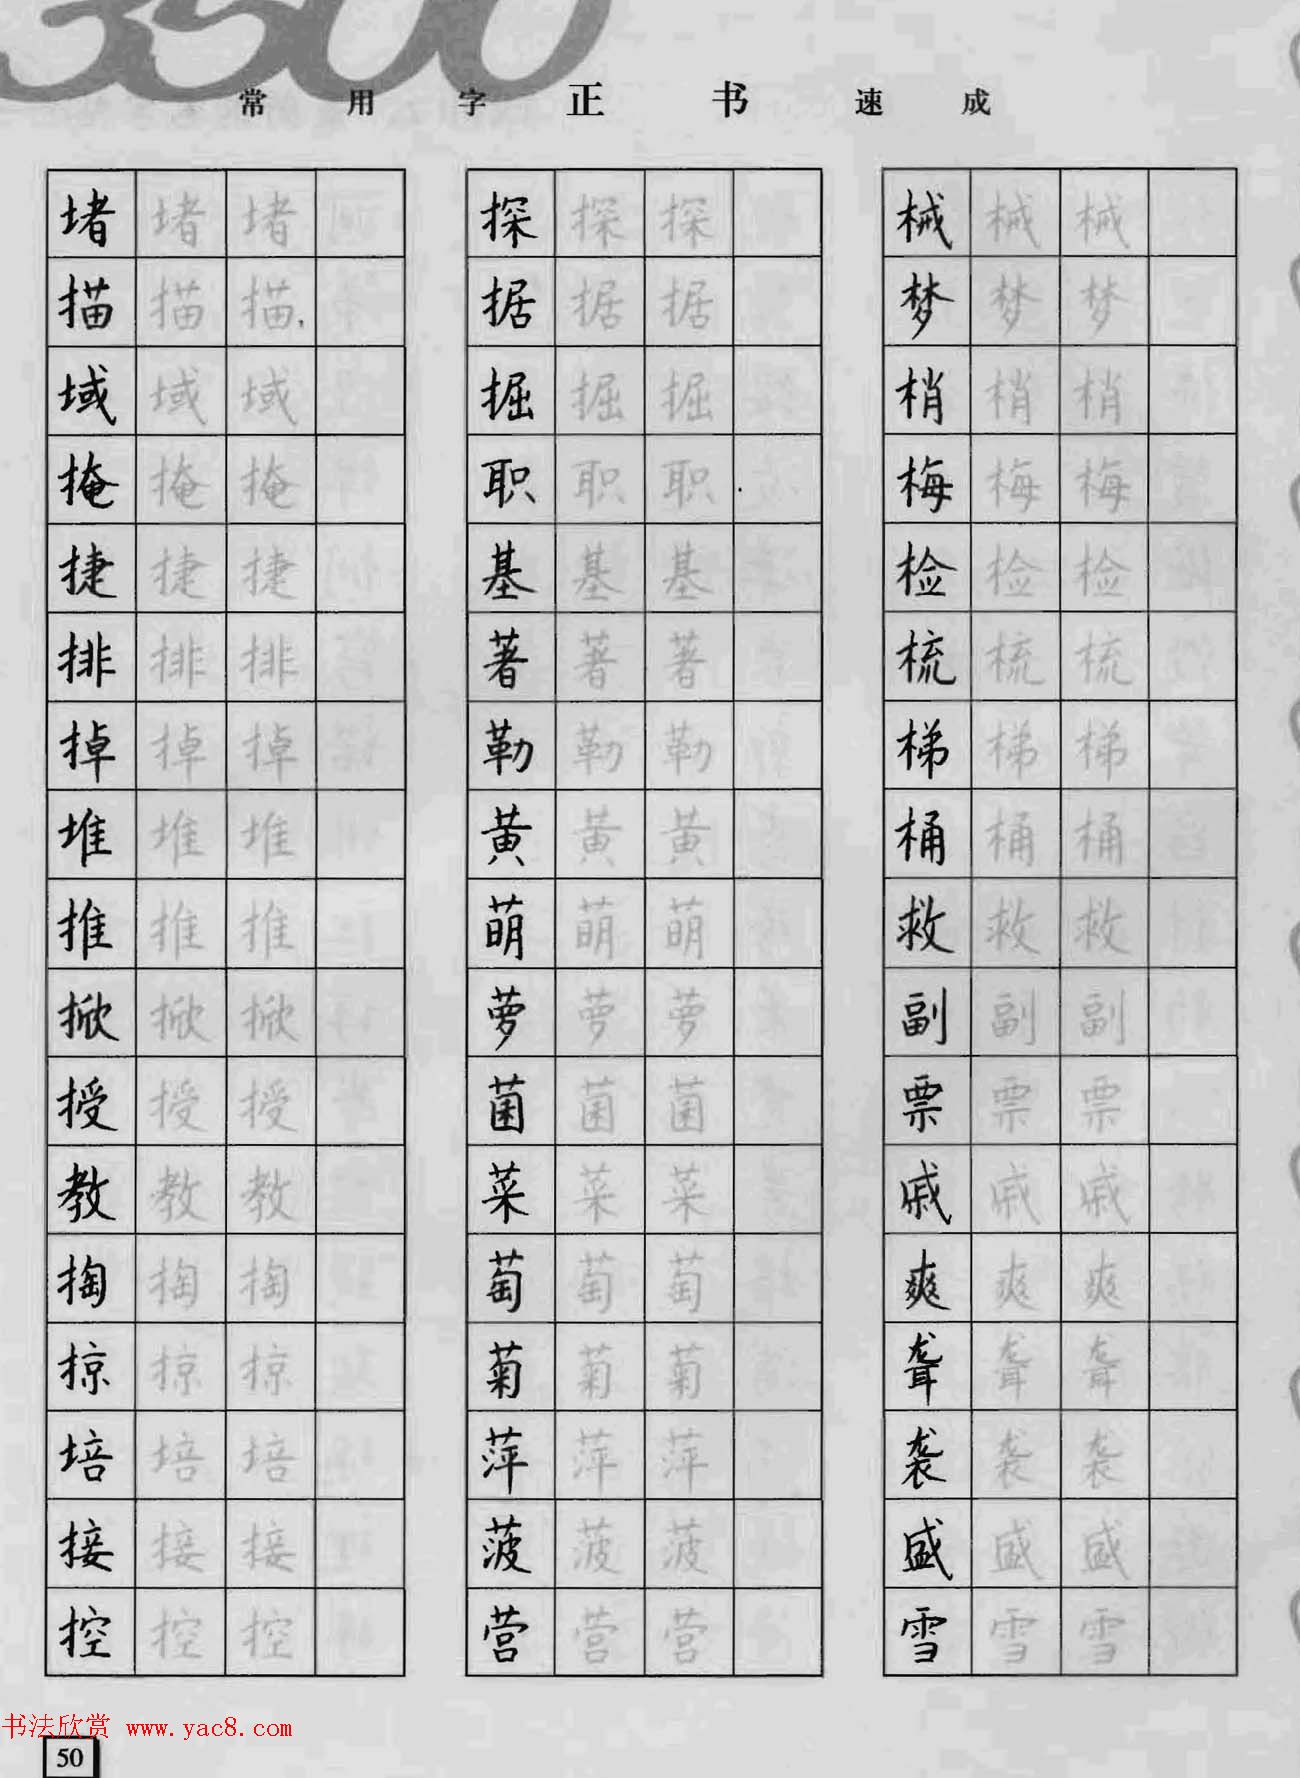 3500
常用字正书速成
堵堵堵 探探探 械械械
描描描 据据据 梦梦梦
域域域 掘掘掘 梢梢梢
掩掩掩 职职职 梅梅梅
捷捷捷 基基基 检检检
排排排 著著著 梳梳梳
掉掉掉 勒勒勒 梯梯梯
堆堆堆 黄黄黄 桶桶桶
推推推 萌萌萌 救救救
掀掀掀 萝萝萝 副副副
授授授 菌菌菌 票票票
教教教 菜菜菜 戚戚戚
掏掏掏 萄萄萄 爽爽爽
掠掠掠 菊菊菊 聋聋聋
培培培 萍萍萍 袭袭袭
接接接 菠菠菠 盛盛盛
控控控 营营营 雪雪雪
书法欣赏 www.yac8.com
50